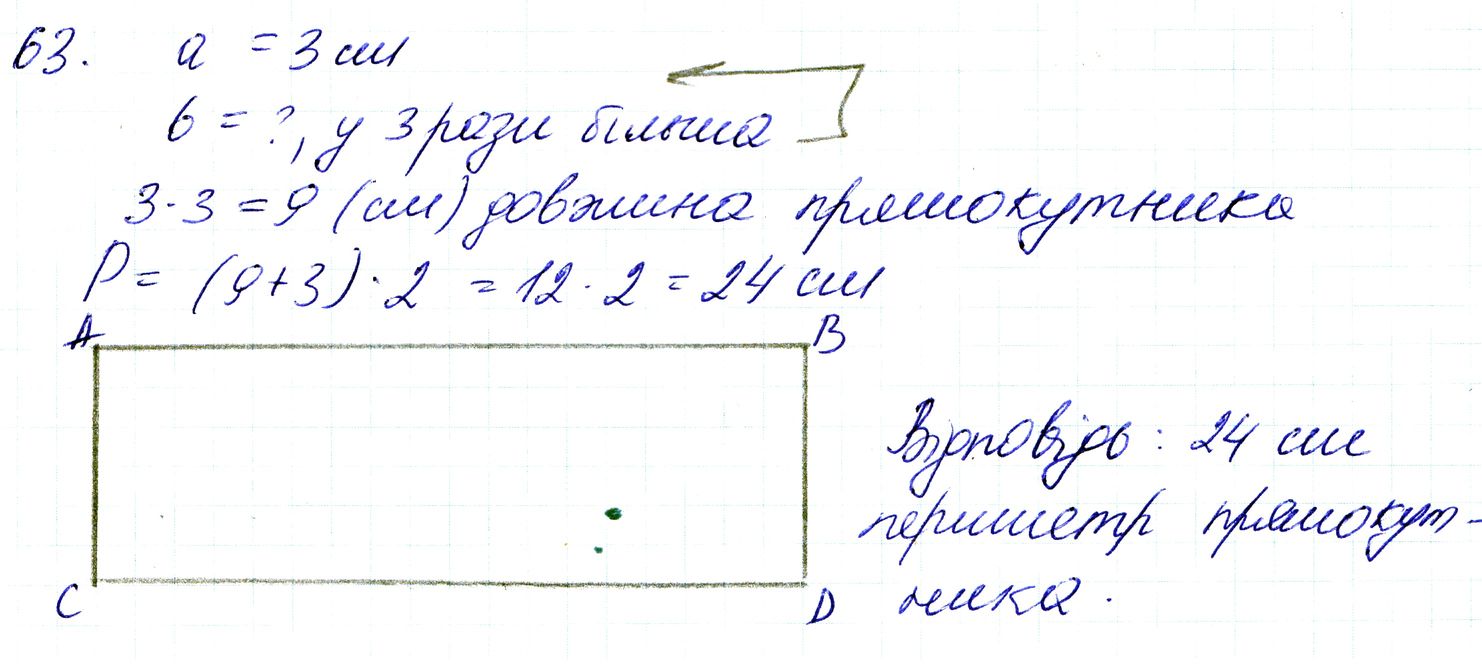 63. a = 3 см
b = ?, у 3 рази більша
3·3 = 9 (см) довжина прямокутника
P = (9+3)·2 = 12·2 = 24 см
A B
Відповідь: 24 см
периметр прямокут-
ника.
C D